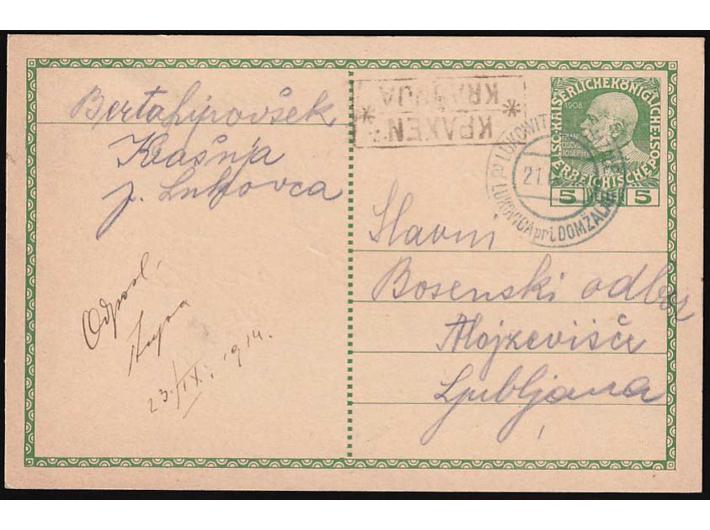 Berta Pirovšek
Krašnja
p. Lukovca
Odposl.
23./IX. 1914.
KRAXEN
KRAŠNJA
1908
KAISERLICHE KÖNIGLICHE
ÖSTERREICHISCHE POST
5 HELLER 5
LUKOWITZ
21.
LUKOVICA pri DOMŽALAH
Slavni
Bosenski odbor
Alojzevišče
Ljubljana